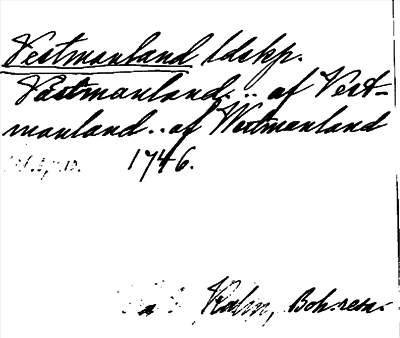 Vestmanland ldskp.
Västmanland. .. af Vest-
manland .. af Westmanland
1746.
Kalm, Boh. resa.